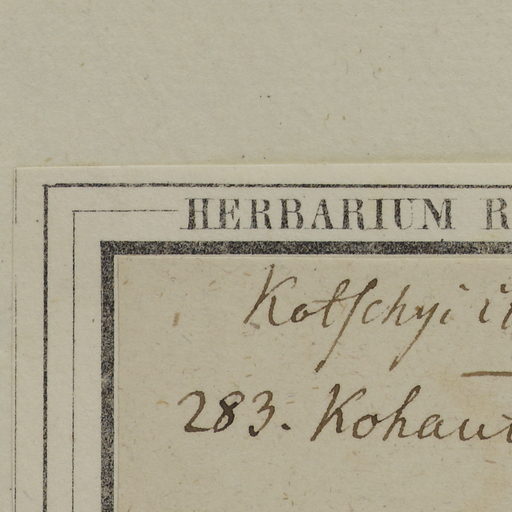 HERBARIUM R
Kotſchyi it
283. Kohaut